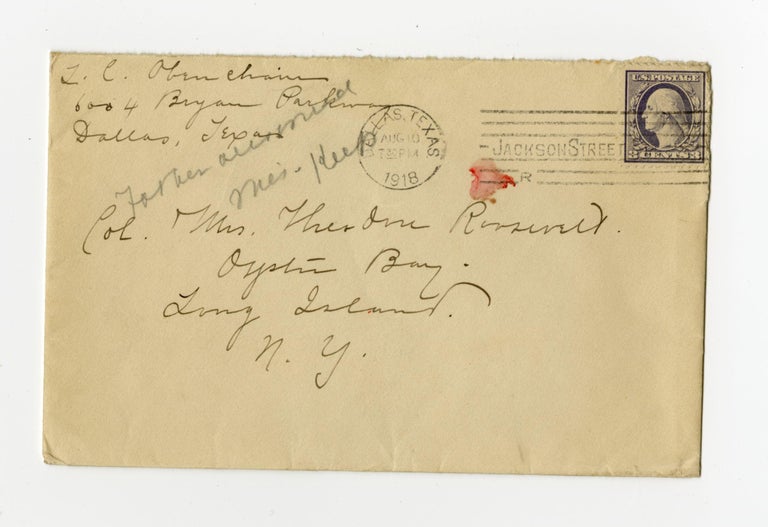 L. C. Obenchain
6004 Bryan Parkway
Dallas, Texas
Father answered
Mis. Keep
DALLAS, TEXAS
AUG 10
7 30 PM
1918
U.S. POSTAGE
3 CENTS 3
JACKSON STREET
R
Col. & Mrs. Theodore Roosevelt.
Oyster Bay.
Long Island.
N. Y.